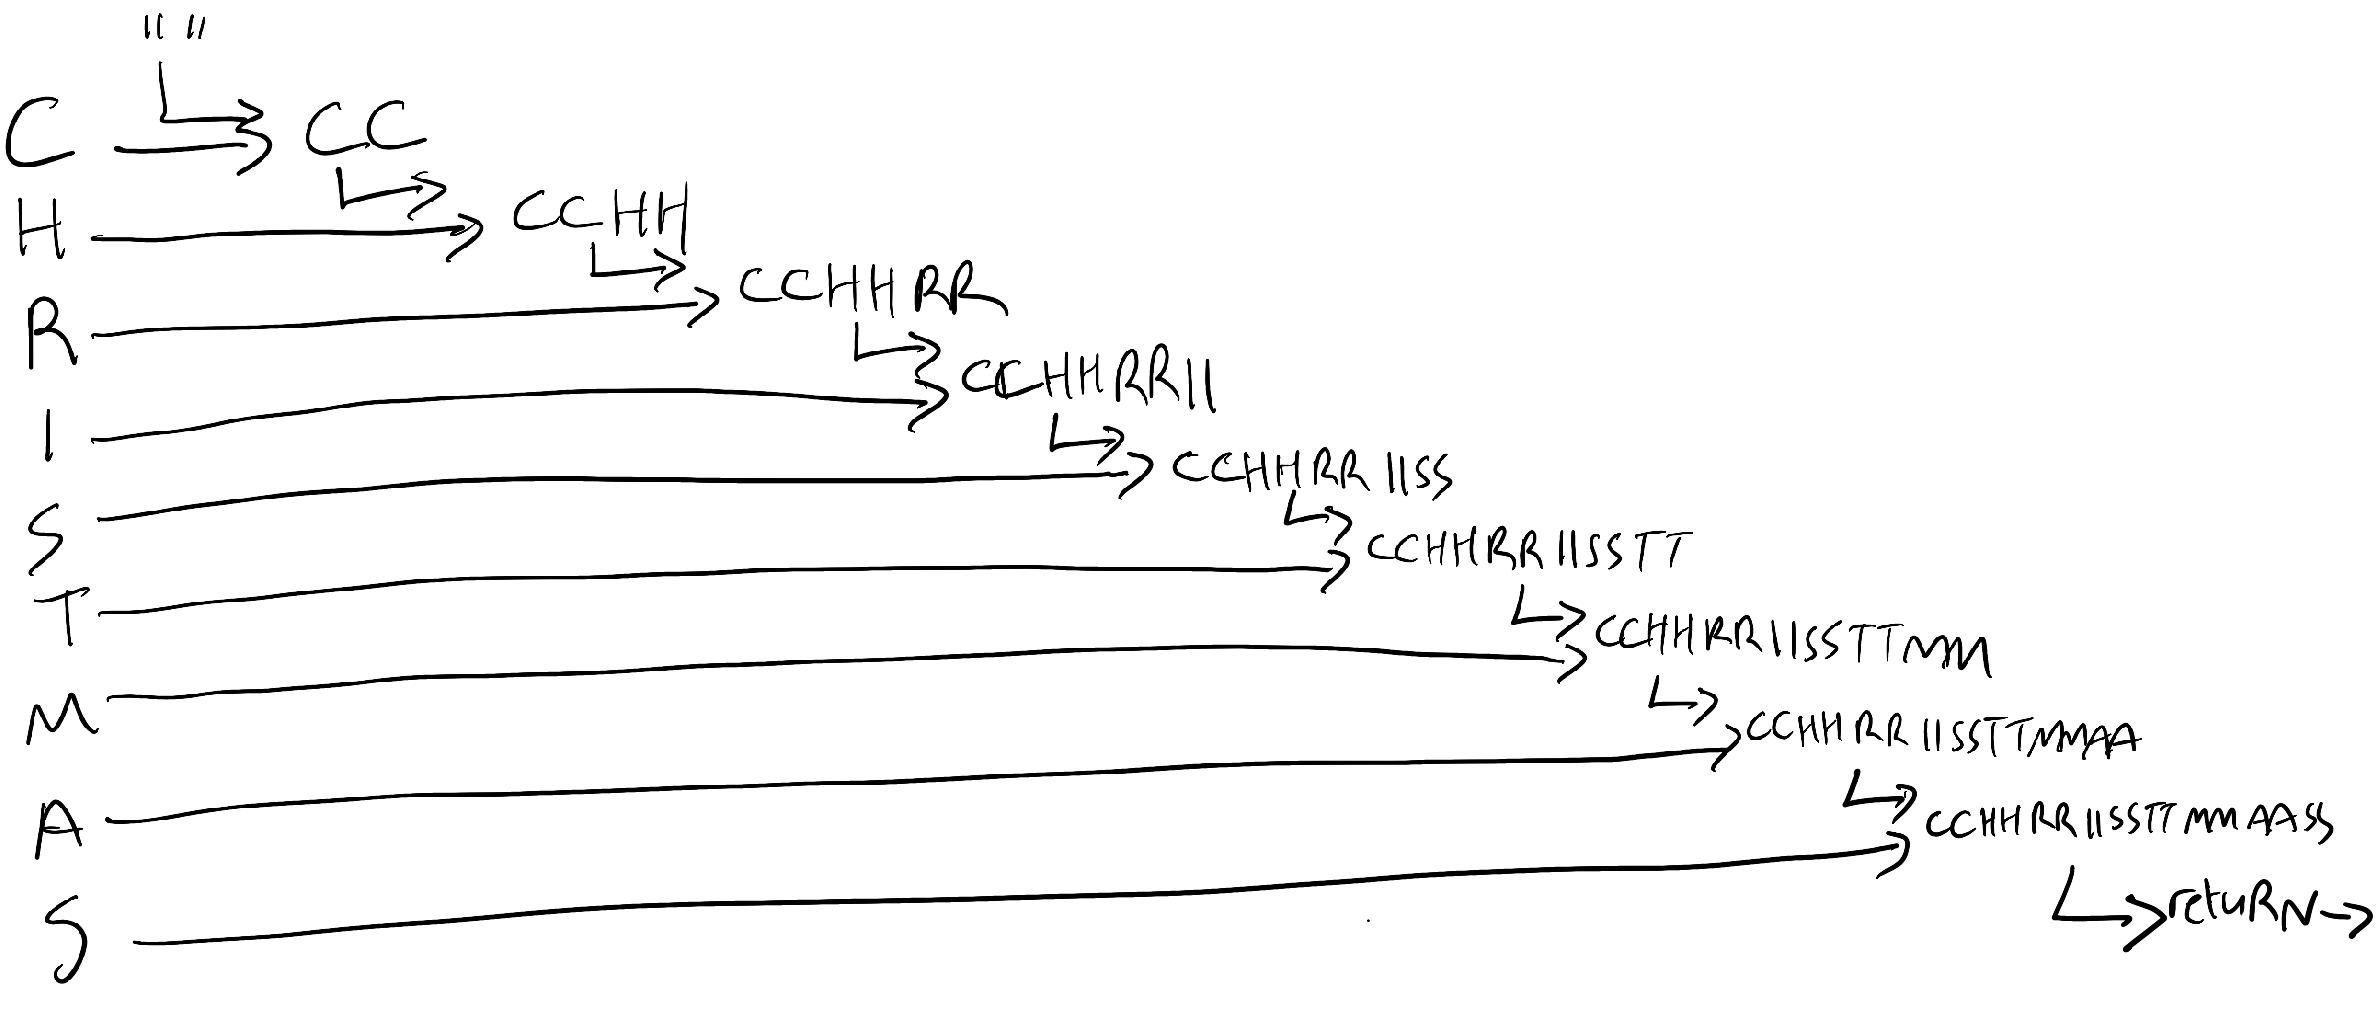 " "
C CC
H CCHH
R CCHHRR
I CCHHRRII
S CCHHRRIISS
T CCHHRRIISSTT
M CCHHRRIISSTTMM
A CCHHRRIISSTTMMAA
S CCHHRRIISSTTMMAASS
retuRN